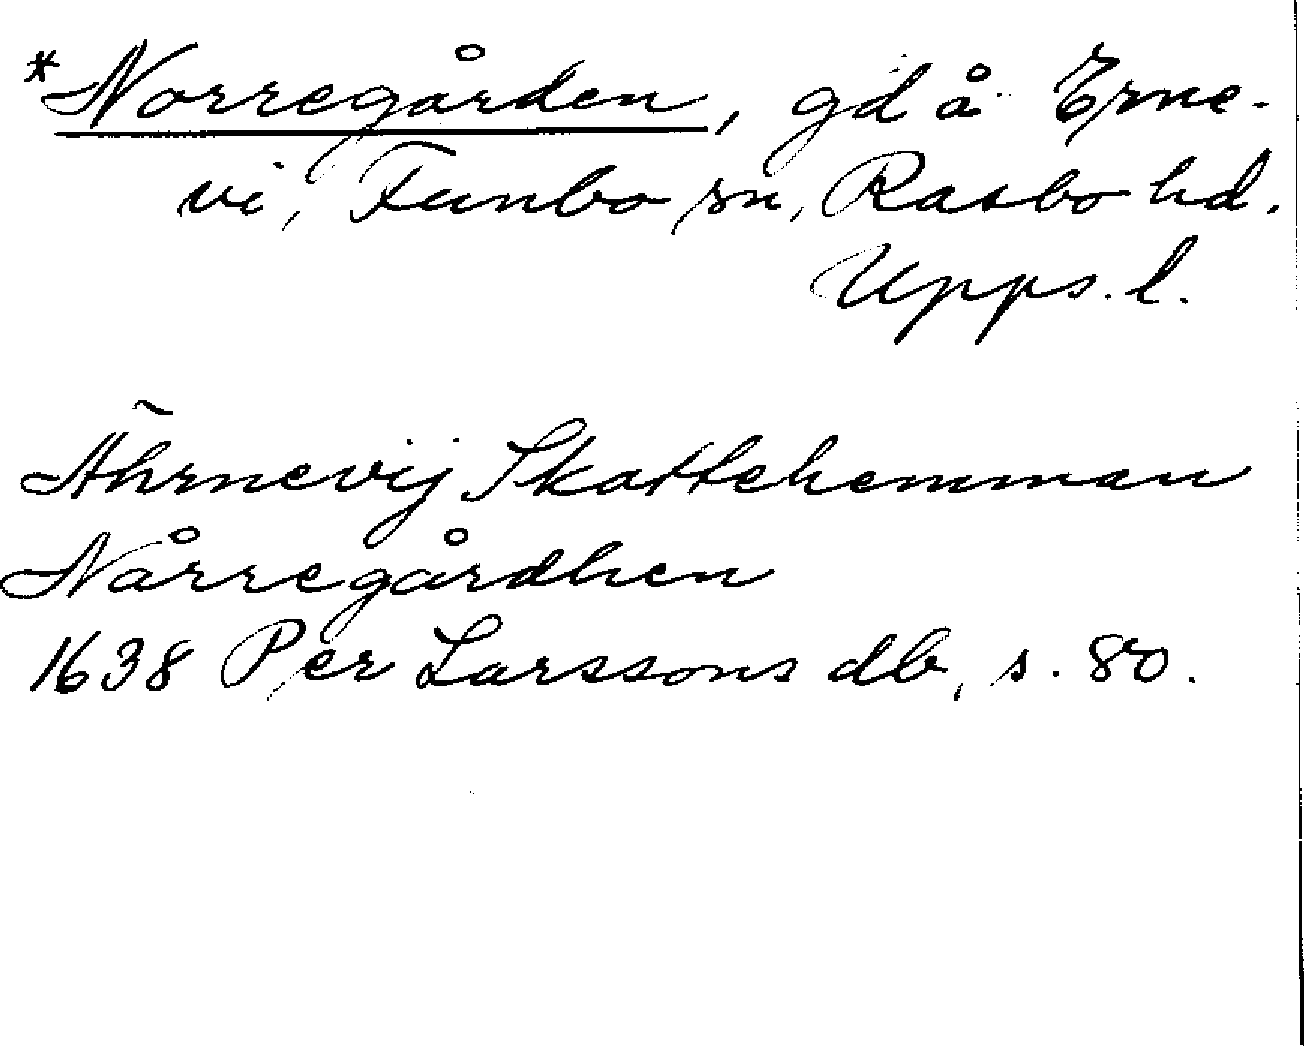 *Norregården, gd å Erne-
vi, Funbo sn, Rasbo hd.
Upps. l.
Ährnevij Skattehemman
Nårregårdhen
1638 Per Larssons db, s. 80.